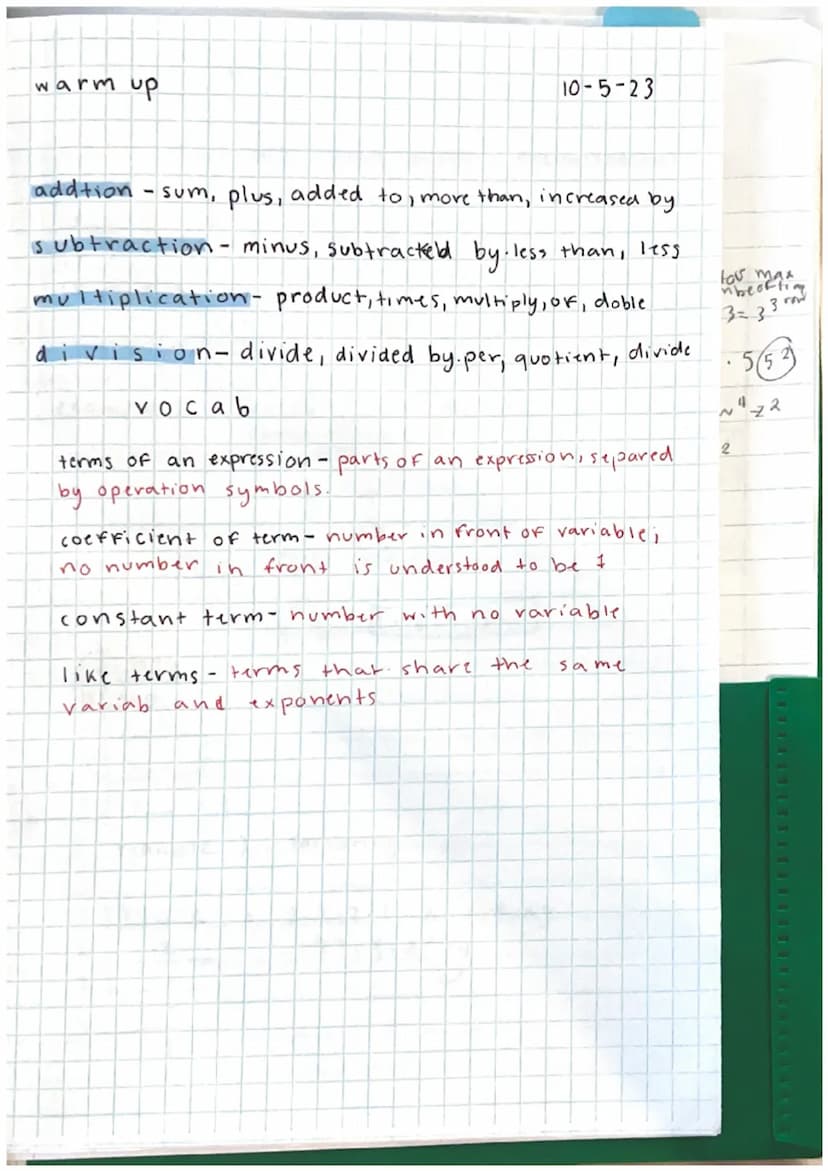 warm up 10-5-23
addtion - sum, plus, added to, more than, increased by
subtraction - minus, subtracted by. less than, less
multiplication - product, times, multiply, of, doble
division - divide, divided by. per, quotient, divide
vocab
terms of an expression - parts of an expression, separed
by operation symbols.
coefficient of term - number in front of variable;
no number in front is understood to be 1
constant term - number with no variable
like terms - terms that share the same
variab and exponents
max
3 = 3³
. 5 5²
2